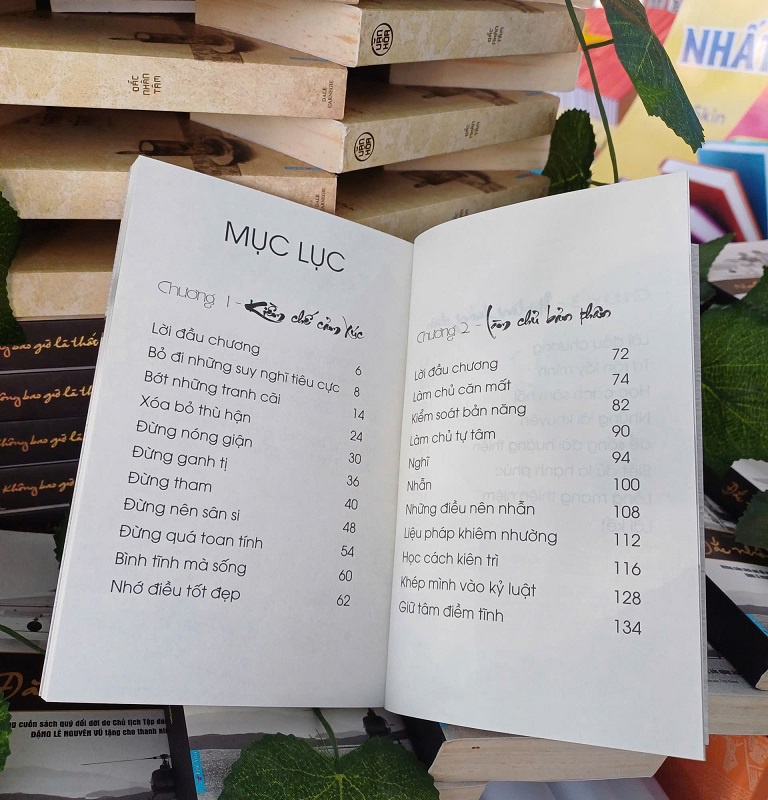 VĂN HÓA
ĐẮC NHÂN TÂM
NHẤT
ĐẮC NHÂN TÂM
DALE CARNEGIE
VĂN HÓA
ĐẮC NHÂN TÂM
MỤC LỤC
Chương 1 - Kiềm chế cảm xúc
Lời đầu chương 6
Bỏ đi những suy nghĩ tiêu cực 8
Bớt những tranh cãi 14
Xóa bỏ thù hận 24
Đừng nóng giận 30
Đừng ganh tị 36
Đừng tham 40
Đừng nên sân si 48
Đừng quá toan tính 54
Bình tĩnh mà sống 60
Nhớ điều tốt đẹp 62
Chương 2 - Làm chủ bản thân
Lời đầu chương 72
Làm chủ căn mất 74
Kiểm soát bản năng 82
Làm chủ tự tâm 90
Nghĩ 94
Nhẫn 100
Những điều nên nhẫn 108
Liệu pháp khiêm nhường 112
Học cách kiên trì 116
Khép mình vào kỷ luật 128
Giữ tâm điềm tĩnh 134
bao giờ là thất
Không bao giờ là
Không bao giờ là
cuốn sách quý đổi đời do Chủ tịch Tập đ
ĐẶNG LÊ NGUYÊN VŨ tặng cho thanh n